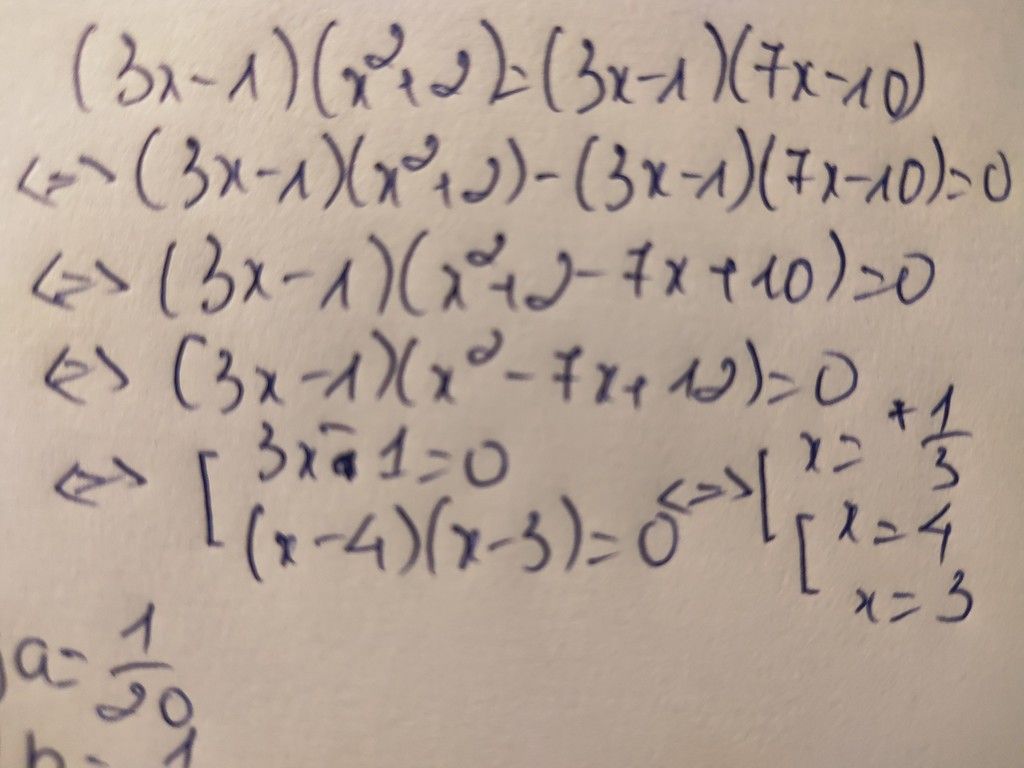 (3x-1)(x²+2)=(3x-1)(7x-10)
<=> (3x-1)(x²+2)-(3x-1)(7x-10)=0
<=> (3x-1)(x²+2-7x+10)=0
<=> (3x-1)(x²-7x+12)=0
<=> [ 3x-1=0
(x-4)(x-3)=0 <=> [ x= +1/3
[ x=4
x=3
a= 1/20